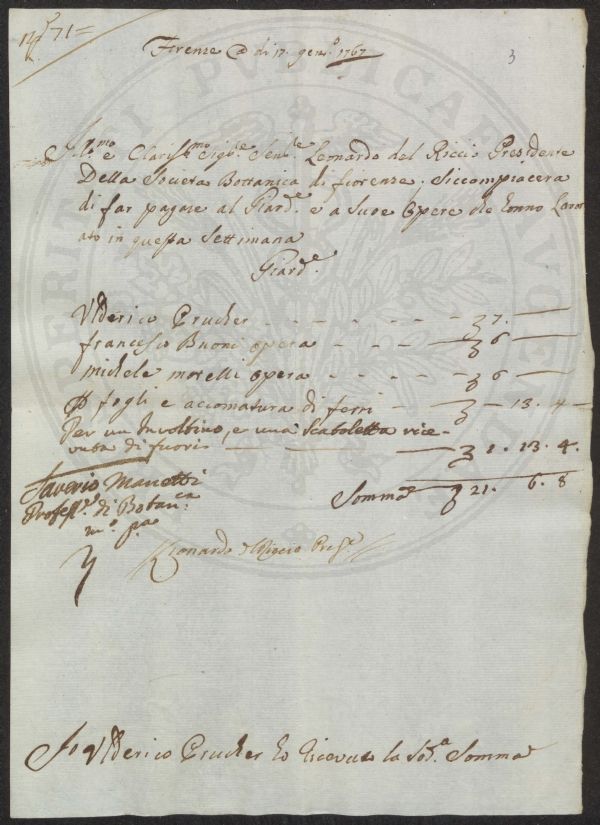 N.º 71=
3
Firenze @ di 17. gen.º 1767
Ill.mo e Clariss.mo Sig.re Sen.re Leonardo del Riccio Presidente
Della Societa Bottanica di fiorenze. Si compiacera
di far pagare al Giard.e e a Sue Opere che Eonno Lavor
ato in questa Settimana
Giard.e
Vlderico Prucker - - - - - - - 7. —
francesco Buoni opera - - - 6 —
michele morelli opera - - - - 6 —
P fogli e acomatura di ferri — — 13. 4 —
Per un Involtino, e una Scatoletta rice-
vuta di fuori — — — 1. 13. 4.
Somma 21. 6. 8
Saverio Manetti
Profess.e di Botan.ca
m.o p.a
Leonardo del Riccio Pres.e
Io Vlderico Prucker ho ricevuto la Sod.a Somma
PERITI PUBLICAE